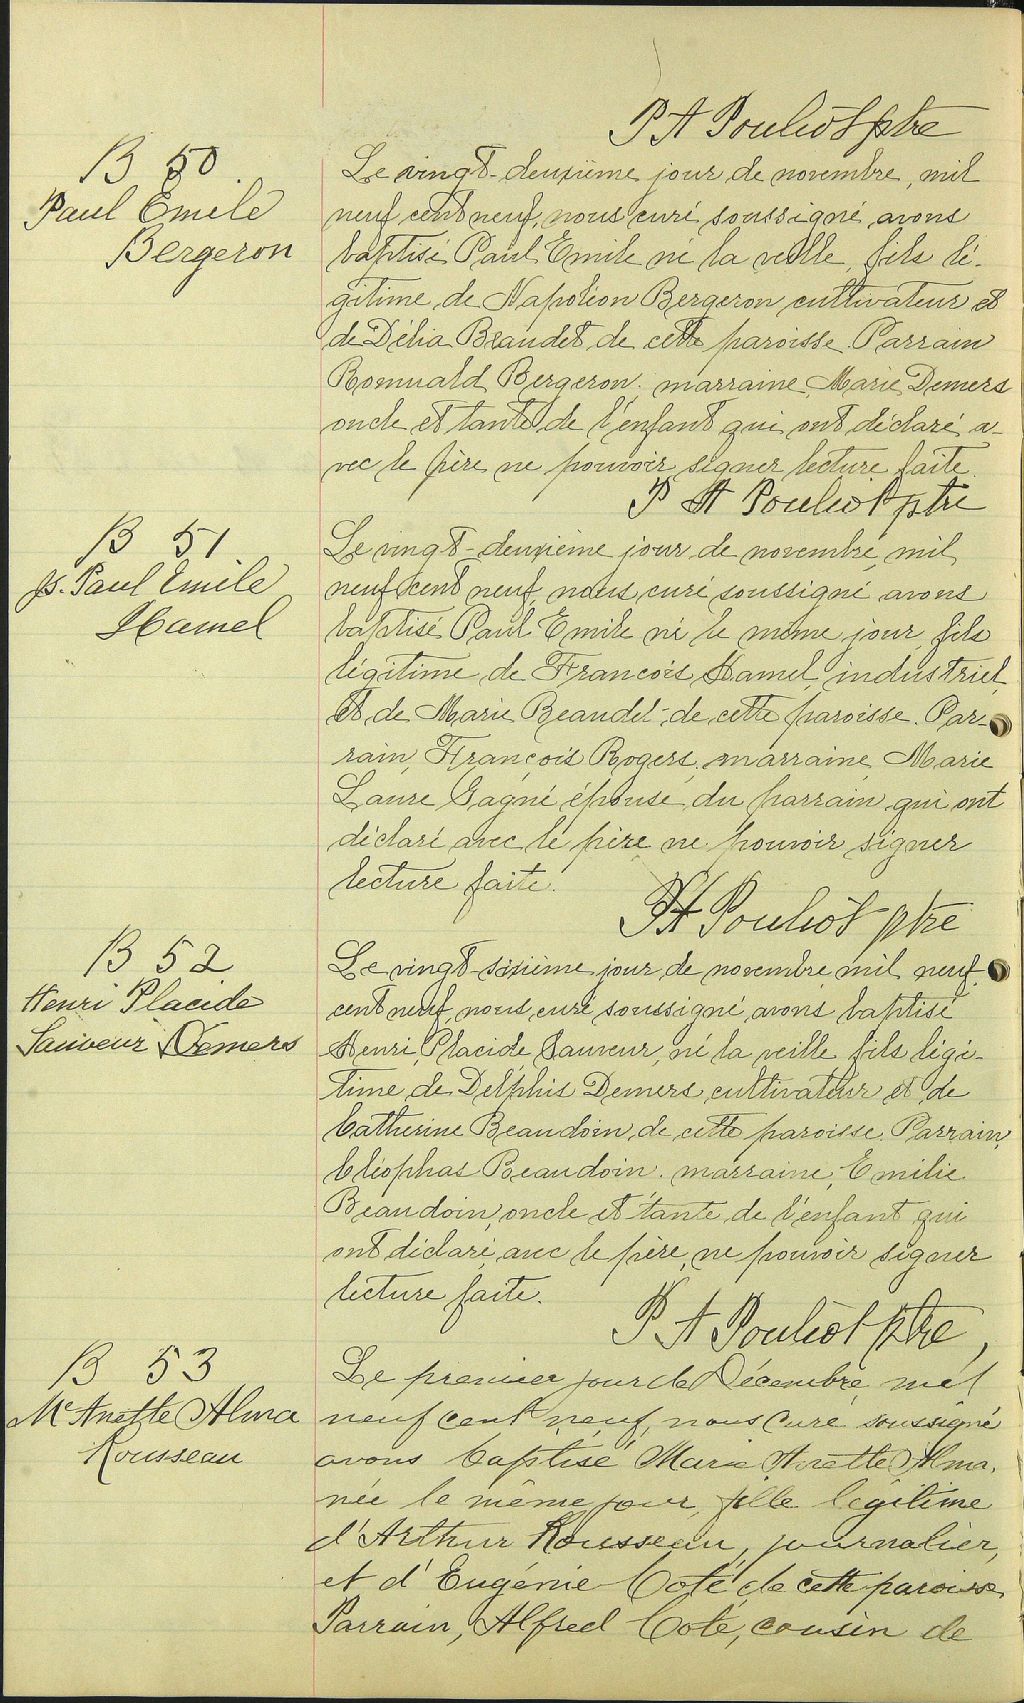 P A Pouliot ptre
B 50
Paul Emile
Bergeron
Le vingt-deuxième jour de novembre, mil
neuf cent neuf, nous curé soussigné avons
baptisé Paul Emile né la veille, fils lé-
gitime de Napoléon Bergeron cultivateur et
de Délia Beaudet de cette paroisse. Parrain
Romuald Bergeron, marraine, Marie Demers
oncle et tante de l'enfant qui ont déclaré a-
vec le père ne pouvoir signer lecture faite.
P A Pouliot ptre
B 51
Js. Paul Emile
Hamel
Le vingt-deuxième jour de novembre, mil
neuf cent neuf, nous curé soussigné avons
baptisé Paul Emile né le même jour, fils
légitime de François Hamel, industriel,
et de Marie Beaudet de cette paroisse. Par-
rain, François Rogers, marraine Marie
Laure Gagné épouse du parrain qui ont
déclaré avec le père ne pouvoir signer
lecture faite.
P A Pouliot ptre
B 52
Henri Placide
Sauveur Demers
Le vingt-sixième jour de novembre mil neuf
cent neuf, nous curé soussigné avons baptisé
Henri, Placide, Sauveur, né la veille fils légi-
time de Delphis Demers cultivateur et de
Catherine Beaudoin de cette paroisse. Parrain,
Cléophas Beaudoin, marraine, Emilie
Beaudoin, oncle et tante de l'enfant qui
ont déclaré, avec le père, ne pouvoir signer
lecture faite.
P A Pouliot ptre,
B 53
Me Anette Alma
Rousseau
Le premier jour de Décembre mil
neuf cent neuf, nous Curé soussigné
avons baptisé Marie Anette Alma,
née le même jour, fille légitime
d'Arthur Rousseau, journalier,
et d'Eugénie Coté de cette paroisse.
Parrain, Alfred Coté, cousin de